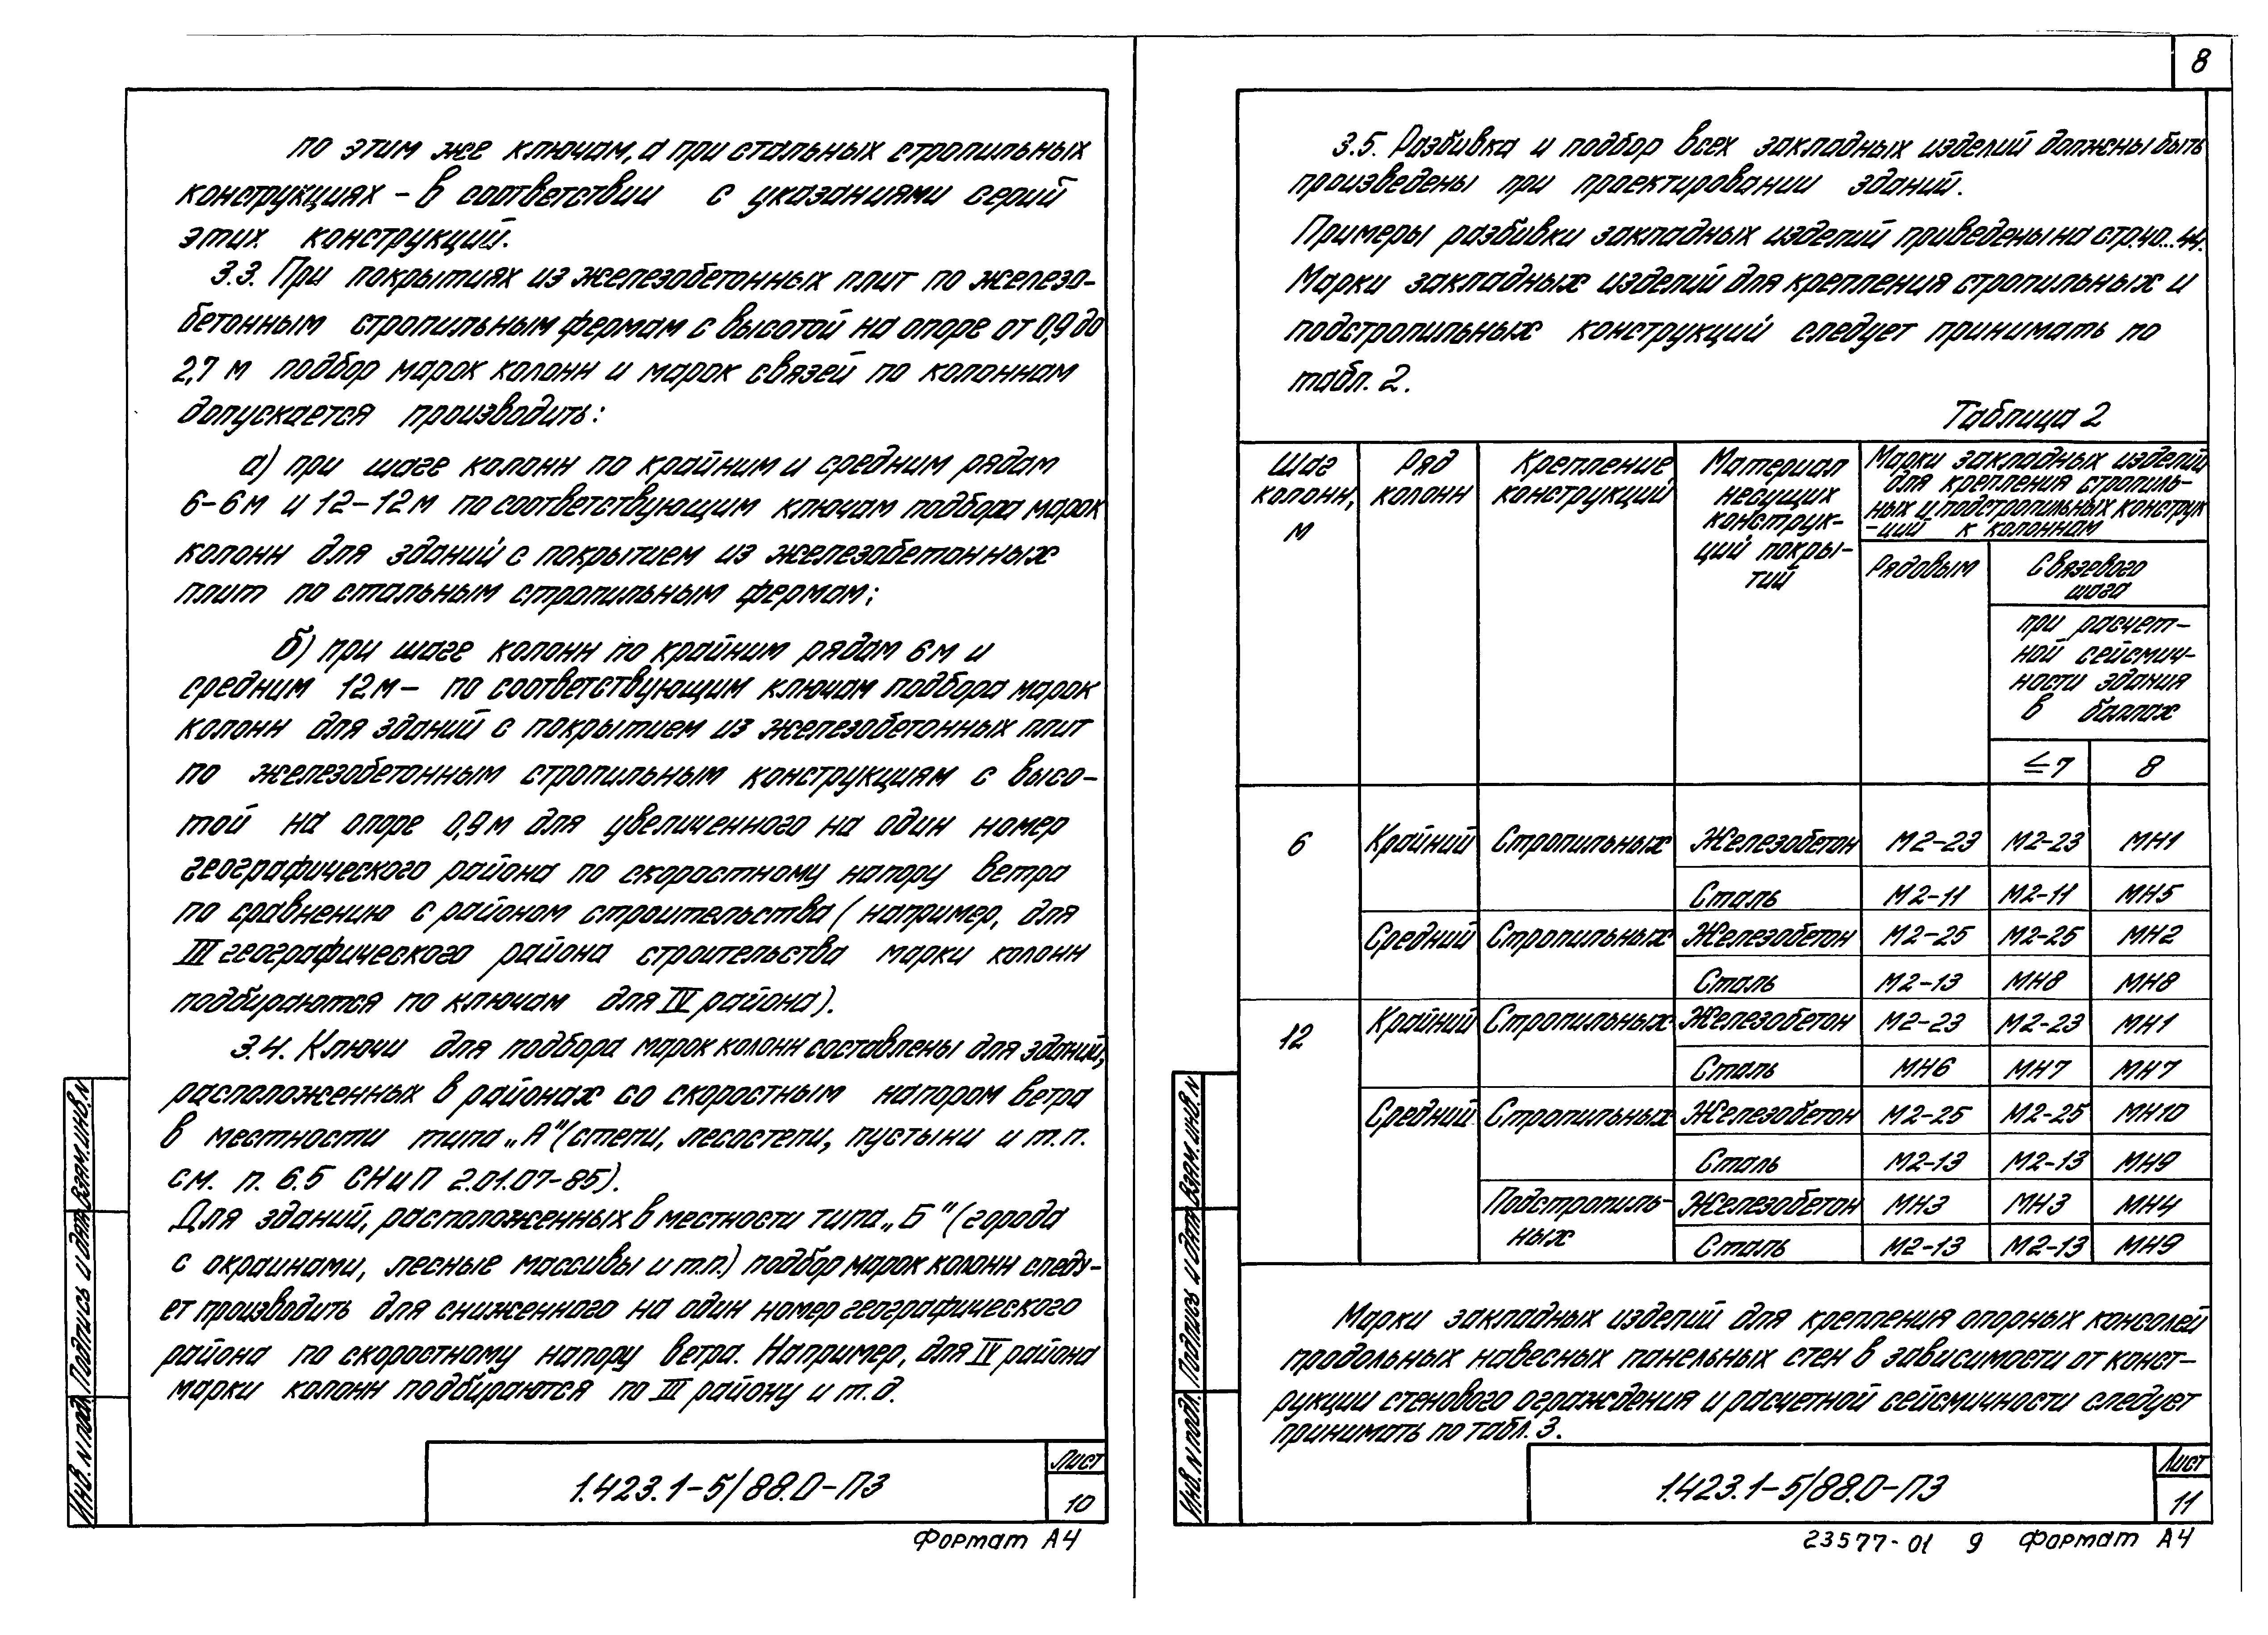 по этим же ключам, а при стальных стропильных
конструкциях – в соответствии с указаниями серий
этих конструкций.
3.3. При покрытиях из железобетонных плит по железо-
бетонным стропильным фермам с высотой на опоре от 0,9 до
2,7 м подбор марок колонн и марок связей по колоннам
допускается производить:
а) при шаге колонн по крайним и средним рядам
6-6м и 12-12м по соответствующим ключам подбора марок
колонн для зданий с покрытием из железобетонных
плит по стальным стропильным фермам;
б) при шаге колонн по крайним рядам 6м и
средним 12м – по соответствующим ключам подбора марок
колонн для зданий с покрытием из железобетонных плит
по железобетонным стропильным конструкциям с высо-
той на опоре 0,9м для увеличенного на один номер
географического района по скоростному напору ветра
по сравнению с районом строительства (например, для
III географического района строительства марки колонн
подбираются по ключам для IV района).
3.4. Ключи для подбора марок колонн составлены для зданий,
расположенных в районах со скоростным напором ветра
в местности типа „А" (степи, лесостепи, пустыни и т.п.
см. п. 6.5 СНиП 2.01.07-85).
Для зданий, расположенных в местности типа „Б" (города
с окраинами, лесные массивы и т.п.) подбор марок колонн следу-
ет производить для сниженного на один номер географического
района по скоростному напору ветра. Например, для IV района
марки колонн подбираются по III району и т.д.
Инв. N подл. Подпись и дата Взам. инв. N
1.423.1-5/88.0-ПЗ
Лист
10
Формат А4
8
3.5. Разбивка и подбор всех закладных изделий должны быть
произведены при проектировании зданий.
Примеры разбивки закладных изделий приведены на стр.40...44.
Марки закладных изделий для крепления стропильных и
подстропильных конструкций следует принимать по
табл. 2.
Таблица 2
Шаг колонн, м
Ряд колонн
Крепление конструкций
Материал несущих конструк-ций покры-тий
Марки закладных изделий
для крепления стропиль-
ных и подстропильных конструк
-ций к колоннам
Рядовым
Связевого
шага
при расчет-
ной сейсмич-
ности здания
в баллах
≤7 8
6 Крайний Стропильных Железобетон М2-23 М2-23 МН1
Сталь М2-11 М2-11 МН5
Средний Стропильных Железобетон М2-25 М2-25 МН2
Сталь М2-13 МН8 МН8
12 Крайний Стропильных Железобетон М2-23 М2-23 МН1
Сталь МН6 МН7 МН7
Средний Стропильных Железобетон М2-25 М2-25 МН10
Сталь М2-13 М2-13 МН9
Подстропиль- Железобетон МН3 МН3 МН4
ных Сталь М2-13 М2-13 МН9
Марки закладных изделий для крепления опорных консолей
продольных навесных панельных стен в зависимости от конст-
рукции стенового ограждения и расчетной сейсмичности следует
принимать по табл. 3.
Инв. N подл. Подпись и дата Взам. инв. N
1.423.1-5/88.0-ПЗ
Лист
11
23577-01 9 Формат А4